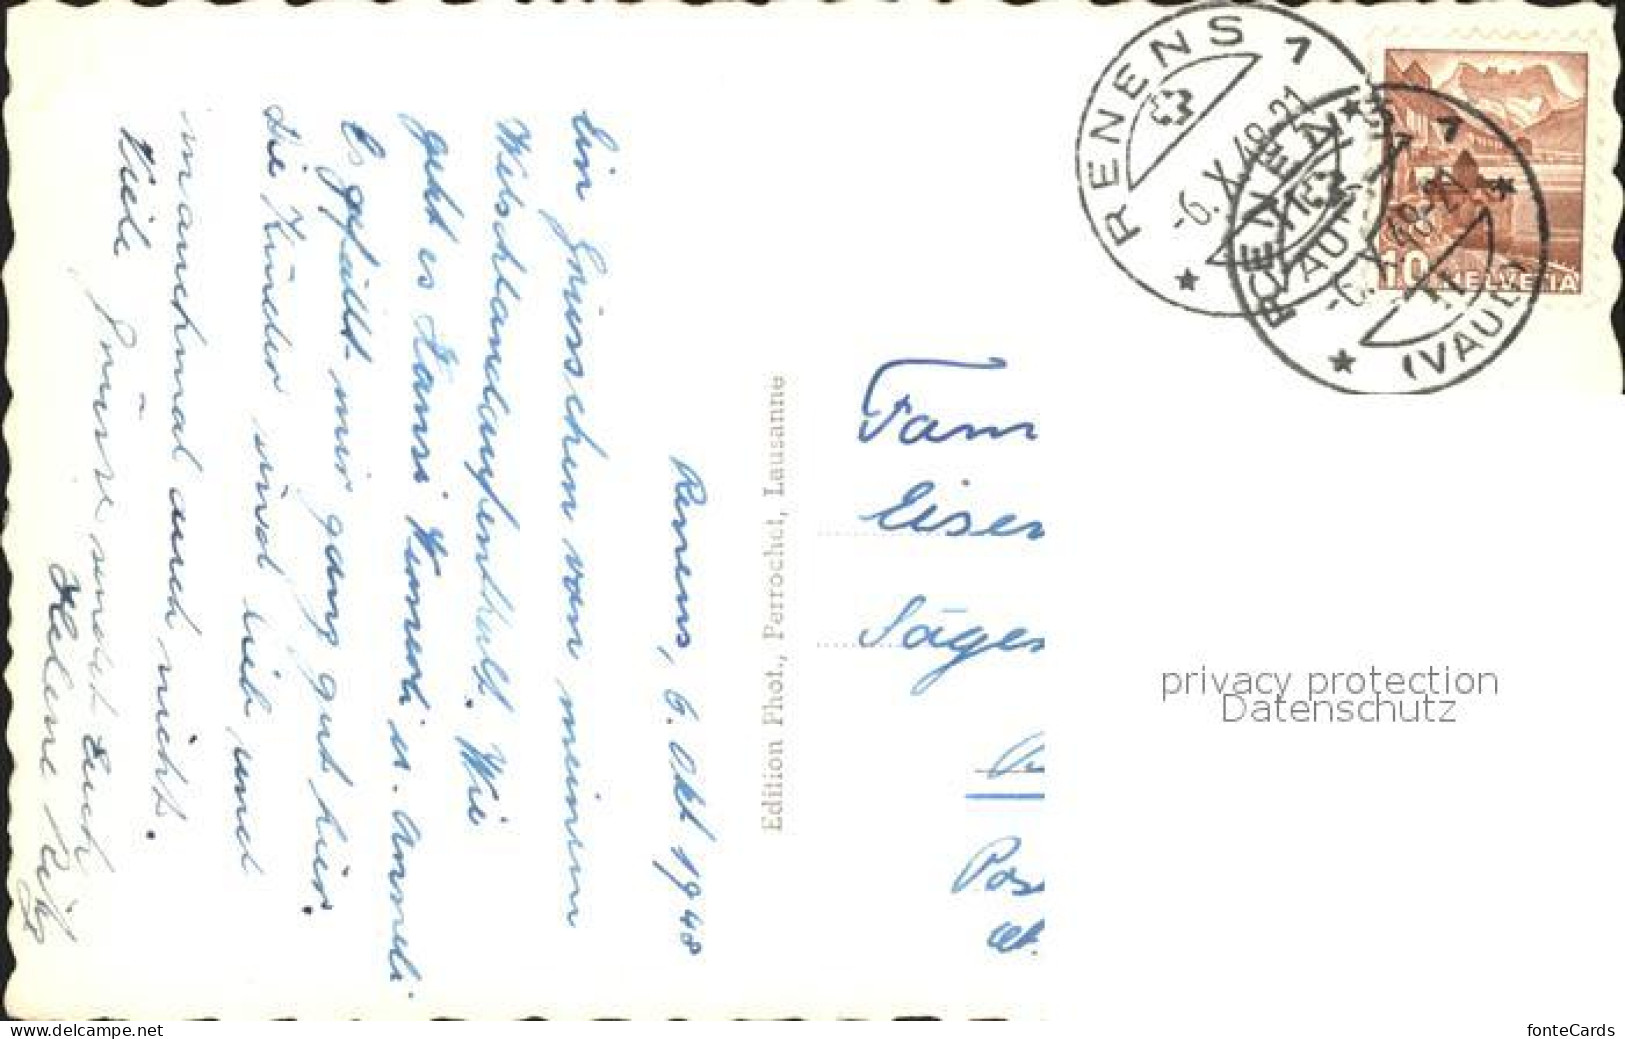 Renens, 6. Okt 1948
Ein Grüsschen von meinem
Welschlandaufenthalt. Wie
geht es Hansi Vreneli u. Anneli
Es gefällt mir ganz gut hier.
Die Kinder sind lieb und
manchmal auch nicht.
Viele Grüsse sendet Euch
Helene
Edition Phot., Perrochet, Lausanne
Fam
Eisen
Säger
Pos
RENENS 1
-6.X.48-21
RENENS 1
(VAUD)
-6.X.48-21
10 HELVETIA
privacy protection
Datenschutz
www.delcampe.net
fonteCards